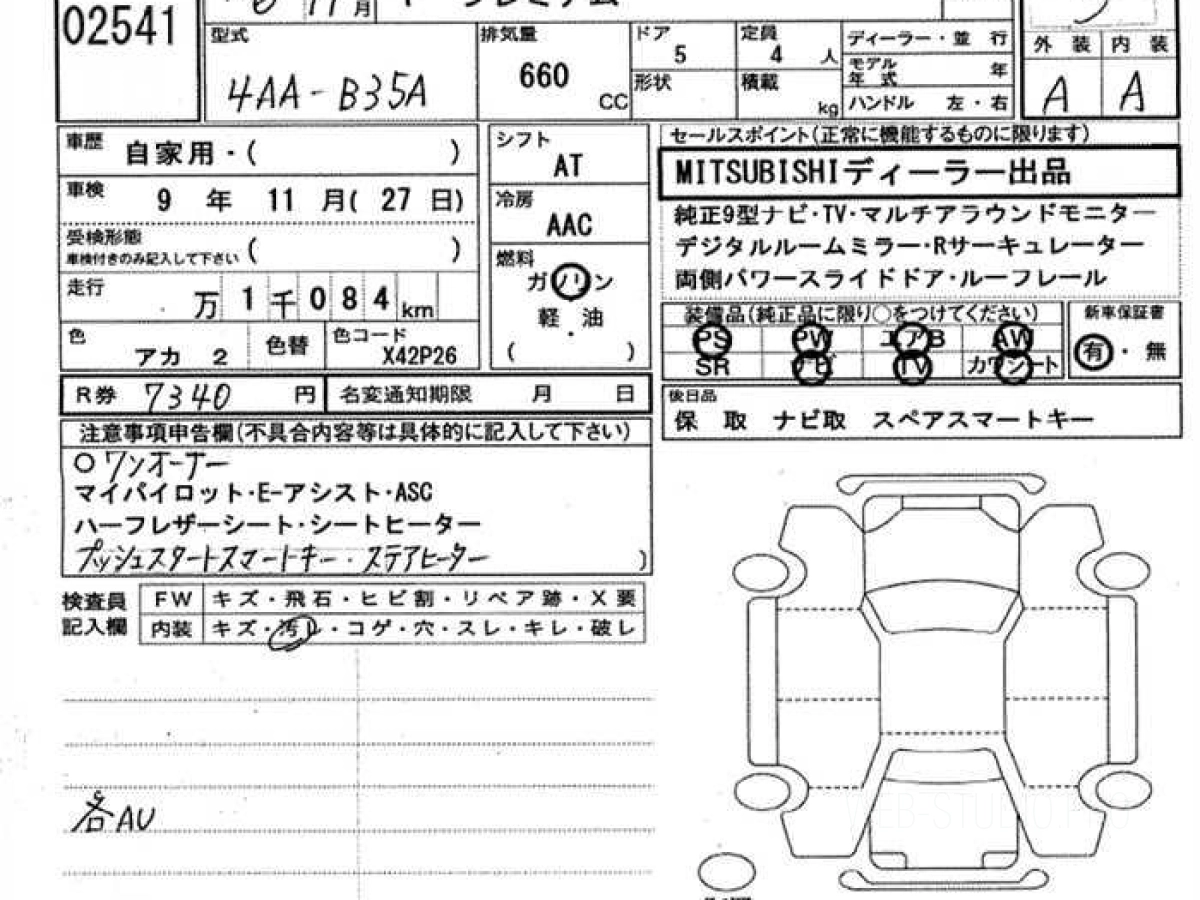 02541
型式
4AA-B35A
排気量
660
CC
ドア
5
形状
定員
4 人
積載
kg
ディーラー・並 行
モデル年式 年
ハンドル 左・右
外 装 内 装
A A
車歴
自家用・( )
車検
9 年 11 月( 27 日)
受検形態
車検付きのみ記入して下さい ( )
走行
万 1 千 0 8 4 km
色
アカ 2
色替
色コード
X42P26
シフト
AT
冷房
AAC
燃料
ガソリン
軽・油
( )
セールスポイント(正常に機能するものに限ります)
MITSUBISHIディーラー出品
純正9型ナビ・TV・マルチアラウンドモニター
デジタルルームミラー・Rサーキュレーター
両側パワースライドドア・ルーフレール
装備品(純正品に限り○をつけてください)
PS PW エアB AW
SR ナビ TV カワシート
新車保証書
有・無
R券 7340 円
名変通知期限 月 日
後日品
保 取 ナビ取 スペアスマートキー
注意事項申告欄(不具合内容等は具体的に記入して下さい)
○ワンオーナー
マイパイロット・E-アシスト・ASC
ハーフレザーシート・シートヒーター
プッシュスタートスマートキー・ステアヒーター )
検査員記入欄
FW キズ・飛石・ヒビ割・リペア跡・X要
内装 キズ・汚レ・コゲ・穴・スレ・キレ・破レ
各AU